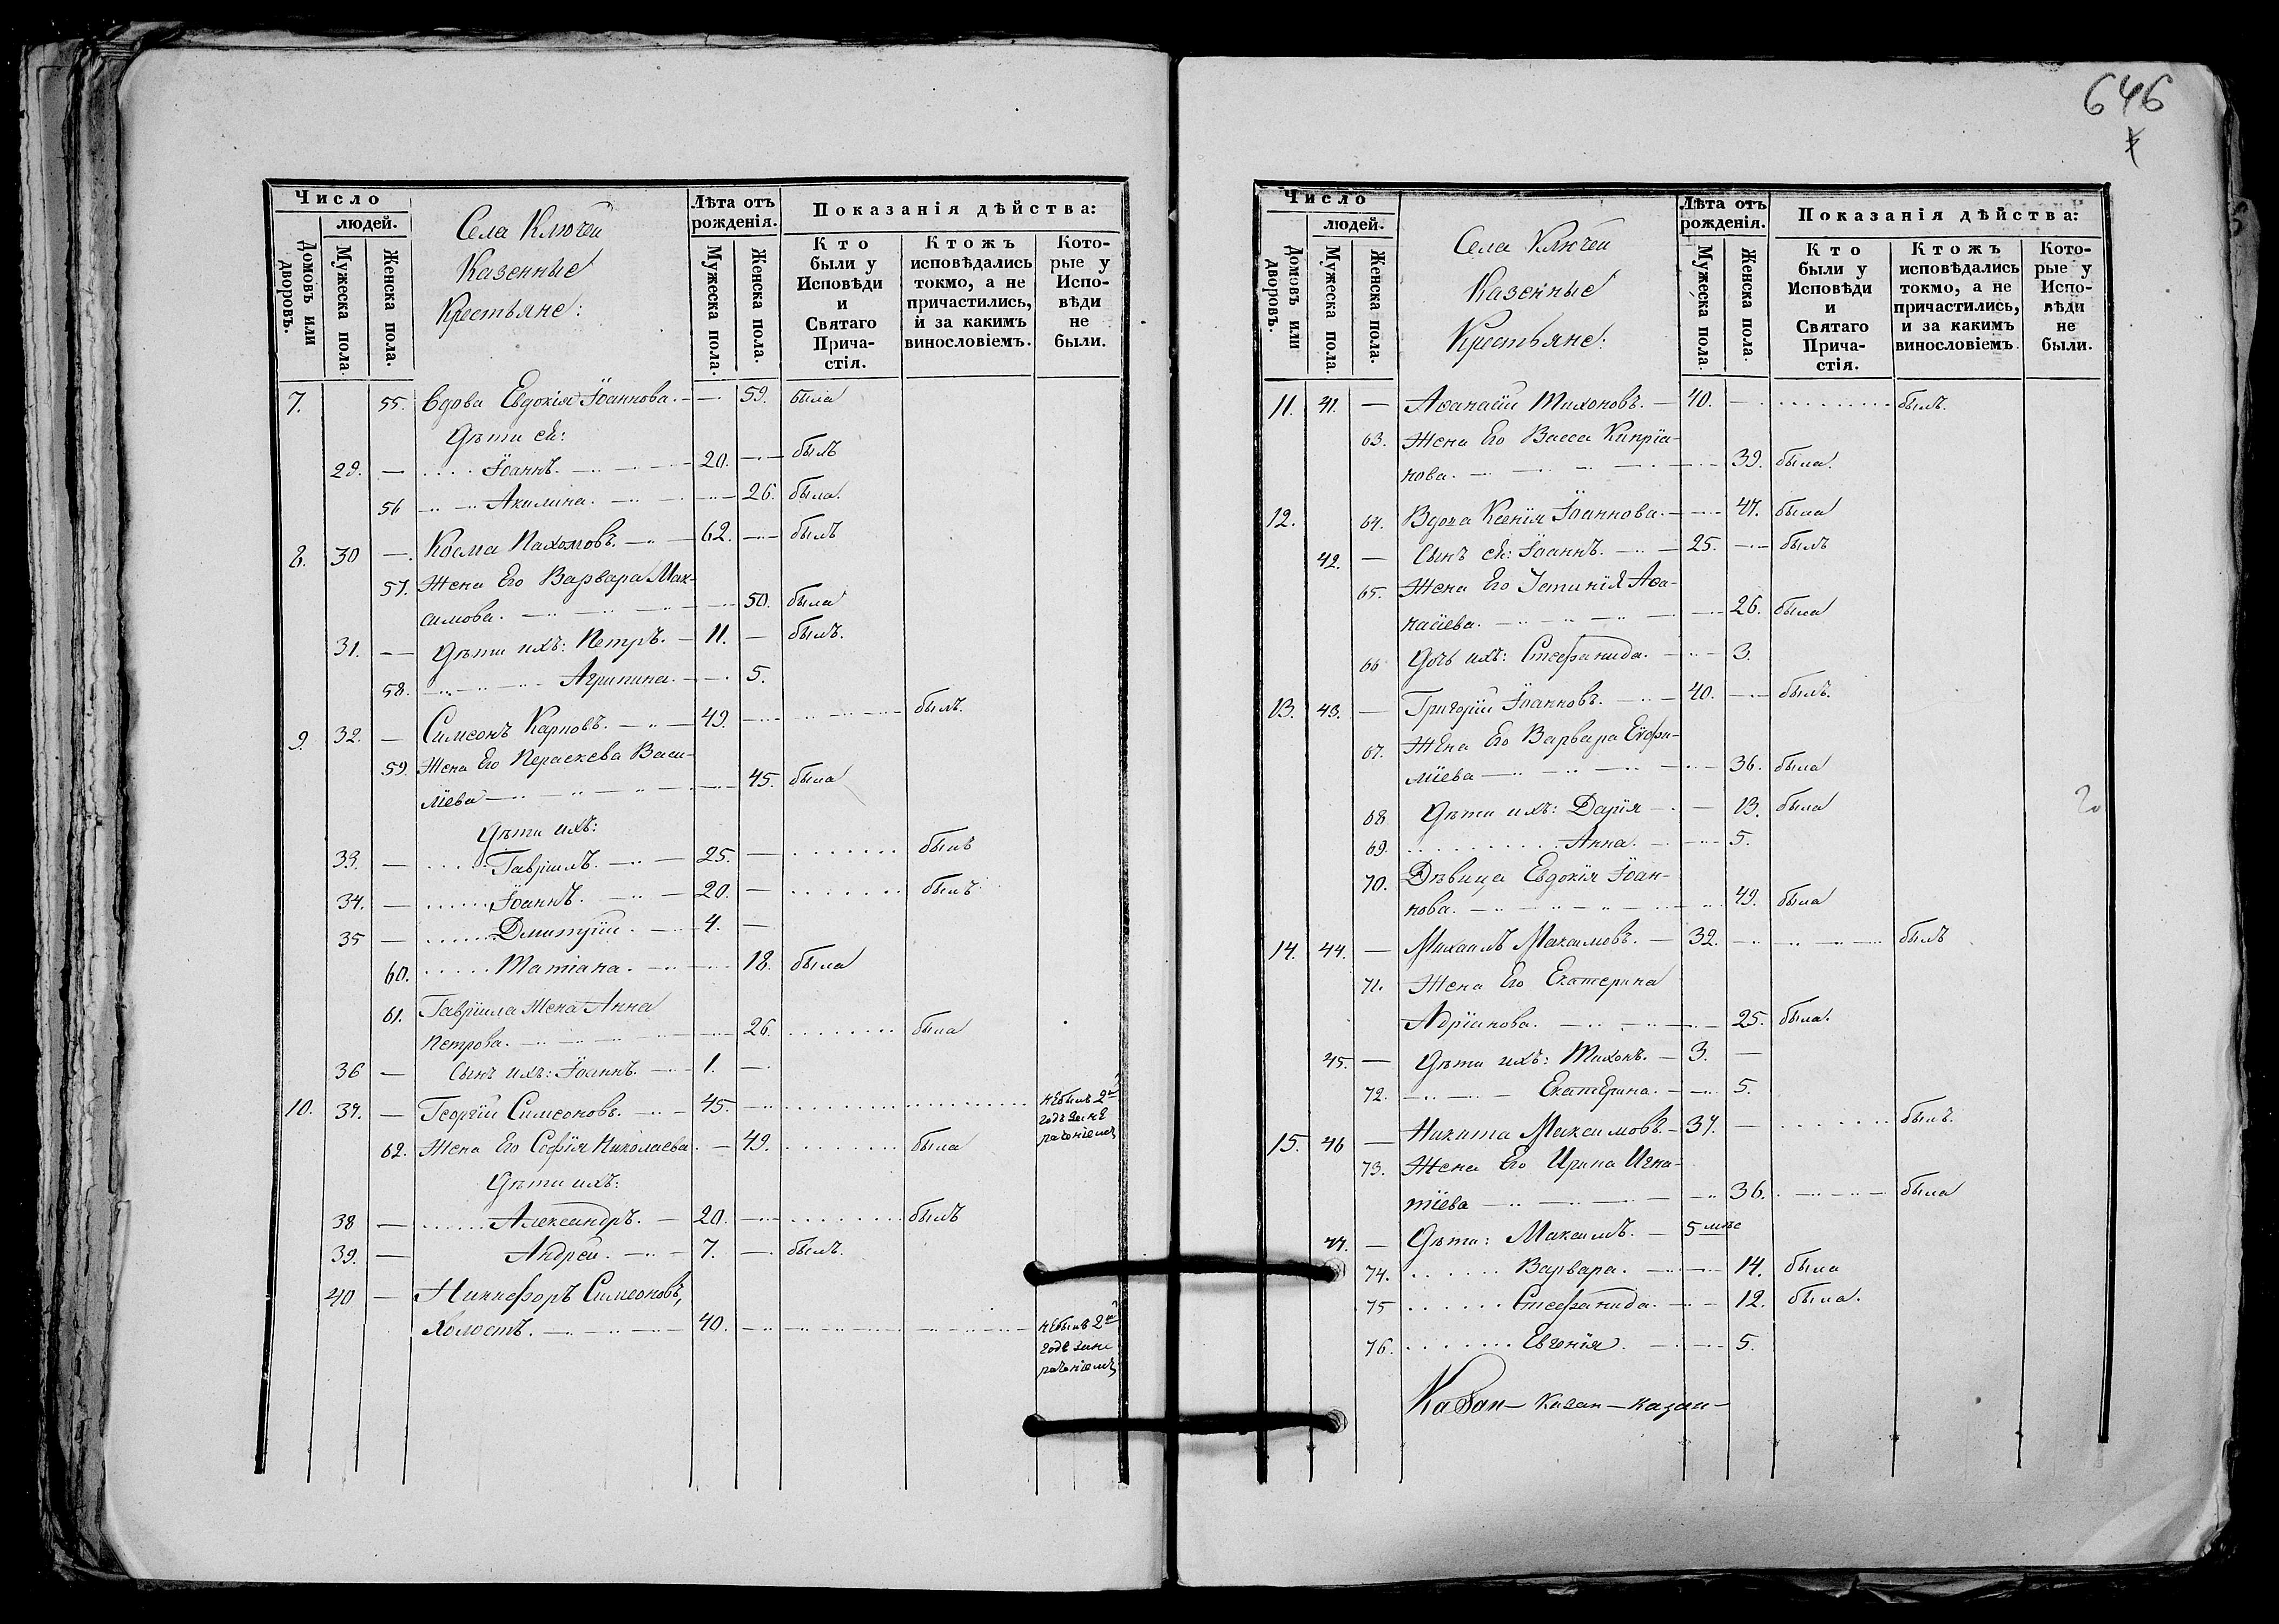 646
Число
людей.
Домовъ или дворовъ.
Мужеска пола.
Женска пола.
Села Ключей
Казенные
Крестьяне:
Лѣта отъ рожденія.
Мужеска пола.
Женска пола.
Показанія дѣйства:
Кто были у Исповѣди и Святаго Прича-стія.
Ктожъ исповѣдались токмо, а не причастились, и за какимъ винословіемъ.
Кото-рые у Испо-вѣди не были.
7. 55. Вдова Евдокія Іоаннова. 59. была
Дѣти ея:
29. Іоаннъ. 20. былъ
56 Акилина. 26. была.
8. 30 Косма Пахомовъ. 62. былъ
57. Жена Его Варвара Мак-
симова. 50. была
31. Дѣти ихъ: Петръ. 11. былъ.
58. Агрипина. 5.
9. 32. Симеонъ Карповъ. 49. былъ.
59. Жена Его Параскева Васи-
ліева 45. была
Дѣти ихъ:
33. Гавріилъ. 25. былъ
34. Іоаннъ. 20. былъ
35 Димитрій. 4.
60. Татіана. 18. была
61. Гавріила Жена Анна
Петрова. 26. была
36 Сынъ ихъ: Іоаннъ. 1.
10. 37. Георгій Симеоновъ. 45. небылъ 2й
годъ зане
раченіемъ
62. Жена Его Софія Николаева 49. была
Дѣти ихъ:
38 Александръ. 20. былъ
39. Андрей. 7. былъ.
40 Никифоръ Симеоновъ,
Холостъ. 40. небылъ 2й
годъ зане
раченіемъ
Число
людей.
Домовъ или дворовъ.
Мужеска пола.
Женска пола.
Села Ключей
Казенные
Крестьяне:
Лѣта отъ рожденія.
Мужеска пола
Женска пола.
Показанія дѣйства:
Кто были у Исповѣди и Святаго Прича-стія.
Ктожъ исповѣдались токмо, а не причастились, и за какимъ винословіемъ.
Кото-рые у Испо-вѣди не были.
11. 41. Аѳанасій Тихоновъ. 40. былъ.
63. Жена Его Васса Кипріа-
нова. 39. была.
12. 64. Вдова Ксенія Іоаннова. 47. была
42. Сынъ ея: Іоаннъ. 25. былъ
65. Жена Его Устинія Аѳа-
насіева. 26. была
66 Дочь ихъ: Стефанида. 3.
13. 43. Григорій Іоанновъ. 40. былъ.
67. Жена Его Варвара Евфи-
міева 36. была
68 Дѣти ихъ: Дарія 13. была
69. Анна. 5.
70. Дѣвица Евдокія Іоан-
нова. 49. была
14. 44. Михаилъ Максимовъ. 32. былъ
71. Жена Его Екатерина
Адріанова. 25. была.
45. Дѣти ихъ: Тихонъ. 3.
72. Екатерина. 5.
15. 46 Никита Максимовъ 37. былъ.
73. Жена Его Ирина Игна-
тіева 36. была
47. Дѣти: Максимъ. 5 мѣс
74. Варвара. 14. была
75 Стефанида. 12. была.
76. Евгенія. 5.
Казан — Казан — Казан —